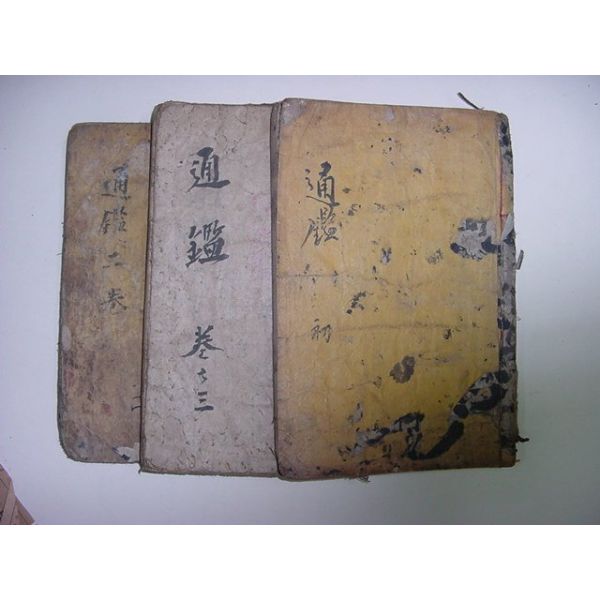 通鑑
初
通鑑
卷之三
通鑑二卷